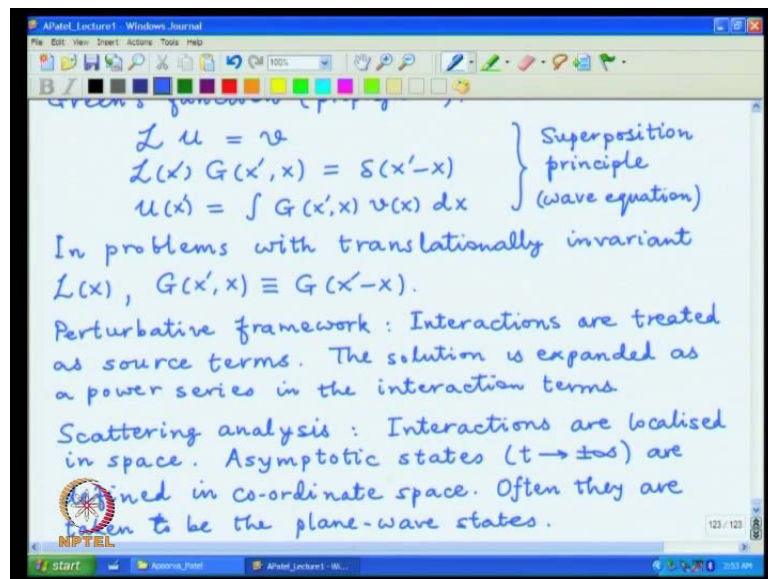 APatel_Lecture1 - Windows Journal
File Edit View Insert Actions Tools Help
100%
B I
Green's function
L u = v
L(x') G(x', x) = δ(x'-x)
u(x') = ∫ G(x', x) v(x) dx
} Superposition
principle
(wave equation)
In problems with translationally invariant
L(x), G(x', x) ≡ G(x'-x).
Perturbative framework : Interactions are treated
as source terms. The solution is expanded as
a power series in the interaction terms
Scattering analysis : Interactions are localised
in space. Asymptotic states (t → ±∞) are
defined in co-ordinate space. Often they are
taken to be the plane-wave states.
NPTEL
123 / 123
start Apoorva_Patel APatel_Lecture1 - Wi... 2:53 AM